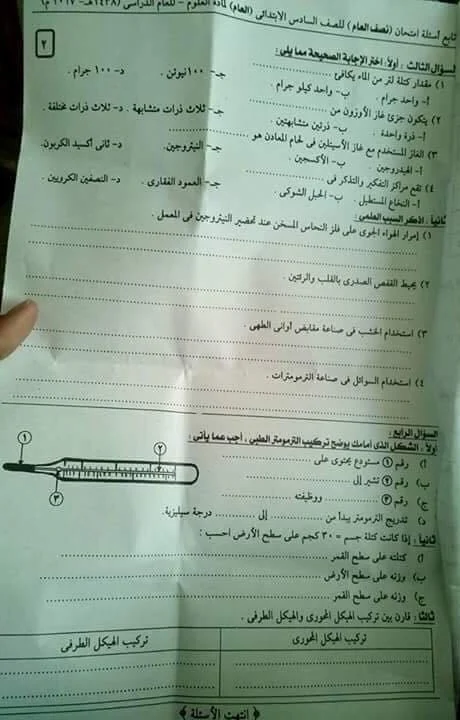 تابع أسئلة امتحان (نصف العام) للصف السادس الابتدائى (العام) لمادة العلوم - للعام الدراسى (١٤٣٨هـ - ٢٠١٧م)
٢
السؤال الثالث : أولاً : اختر الإجابة الصحيحة مما يلى :
١) مقدار كتلة لتر من الماء يكافئ ..................
أ- واحد جرام . ب- واحد كيلو جرام . جـ- ١٠٠ نيوتن . د- ١٠٠ جرام .
٢) يتكون جزئ غاز الأوزون من ..................
أ- ذرة واحدة . ب- ذرتين متشابهتين . جـ- ثلاث ذرات متشابهة . د- ثلاث ذرات مختلفة .
٣) الغاز المستخدم مع غاز الأسيتلين فى لحام المعادن هو ..................
أ- الهيدروجين . ب- الأكسجين . جـ- النيتروجين . د- ثانى أكسيد الكربون.
٤) تقع مراكز التفكير والتذكر فى ..................
أ- النخاع المستطيل . ب- الحبل الشوكى . جـ- العمود الفقارى . د- النصفين الكرويين .
ثانياً : اذكر السبب العلمى :
١) إمرار الهواء الجوى على فلز النحاس المسخن عند تحضير النيتروجين فى المعمل .
٢) يحيط القفص الصدرى بالقلب والرئتين .
٣) استخدام الخشب فى صناعة مقابض أوانى الطهى .
٤) استخدام السوائل فى صناعة الترمومترات .
السؤال الرابع :
أولاً : الشكل الذى أمامك يوضح تركيب الترمومتر الطبى ، أجب عما يأتى :
أ) رقم ① مستودع يحتوى على ..................
ب) رقم ② تشير إلى ..................
ج) رقم ③ .................. ووظيفته ..................
د) تدريج الترمومتر يبدأ من .................. إلى .................. درجة سيليزية.
①
②
③
ثانياً : إذا كانت كتلة جسم = ٣٠ كجم على سطح الأرض احسب :
أ) كتلته على سطح القمر ..................
ب) وزنه على سطح الأرض ..................
ج) وزنه على سطح القمر ..................
ثالثاً : قارن بين تركيب الهيكل المحورى والهيكل الطرفى .
تركيب الهيكل المحورى تركيب الهيكل الطرفى
﴿ انتهت الأسئلة ﴾